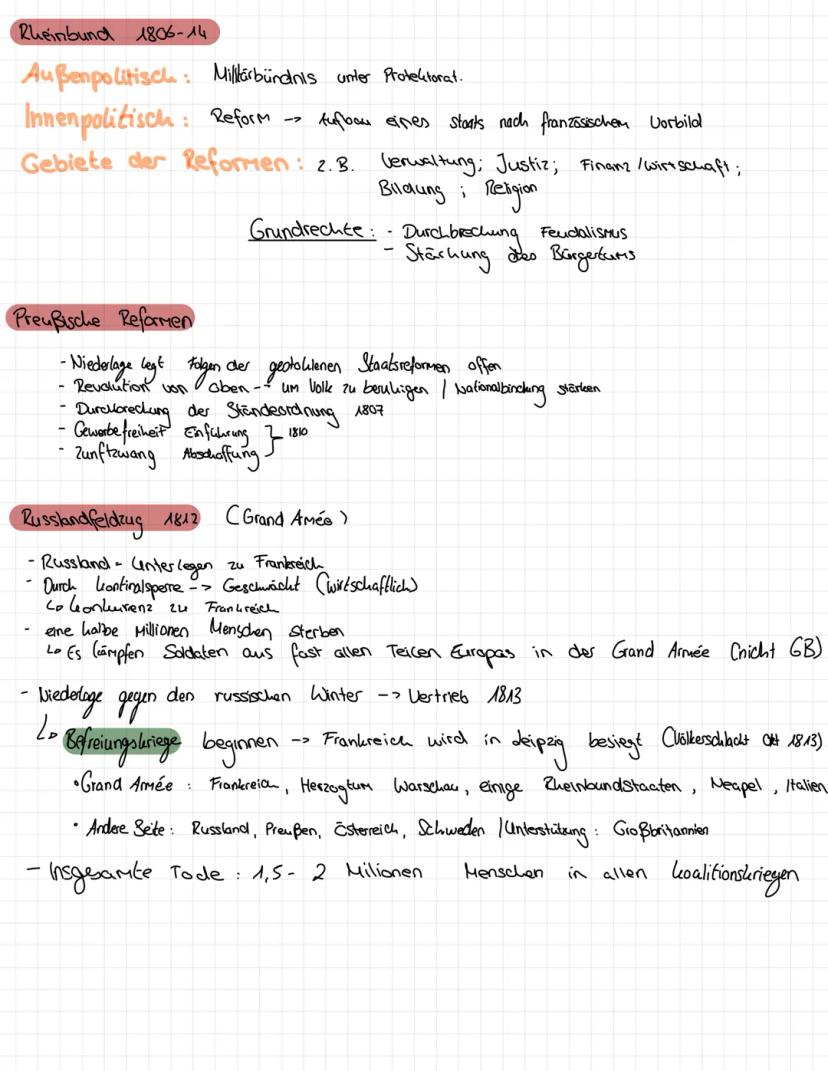 Rheinbund 1806-14
Außenpolitisch: Militärbündnis unter Protektorat.
Innenpolitisch: Reform -> Aufbau eines Staats nach französischem Vorbild
Gebiete der Reformen: z.B. Verwaltung; Justiz; Finanz/wirtschaft;
Bildung; Religion
Grundrechte: - Durchbrechung Feudalismus
- Stärkung des Bürgertums
Preußische Reformen
- Niederlage legt Folgen der Staatsreformen offen
- Revolution von oben --> um Volk zu beruhigen / Nationalbindung stärken
- Durchbrechung der Ständeordnung 1807
- Gewerbefreiheit Einführung } 1810
- Zunftzwang Abschaffung
Russlandfeldzug 1812 (Grand Amée)
- Russland - Unterlegen zu Frankreich
- Durch Kontinalsperre --> Geschwächt (wirtschaftlich)
↳ Konkurenz zu Frankreich
- eine halbe Millionen Menschen sterben
↳ Es kämpfen Soldaten aus fast allen Teilen Europas in der Grand Armée (nicht GB)
- Niederlage gegen den russischen Winter --> Vertrieb 1813
↳ Befreiungskriege beginnen --> Frankreich wird in Leipzig besiegt (Völkerschlacht Okt 1813)
• Grand Armée: Frankreich, Herzogtum Warschau, einige Rheinbundstaaten, Neapel, Italien
• Andere Seite: Russland, Preußen, Österreich, Schweden / Unterstützung: Großbritannien
- Insgesamte Tode: 1,5 - 2 Milionen Menschen in allen Koalitionskriegen